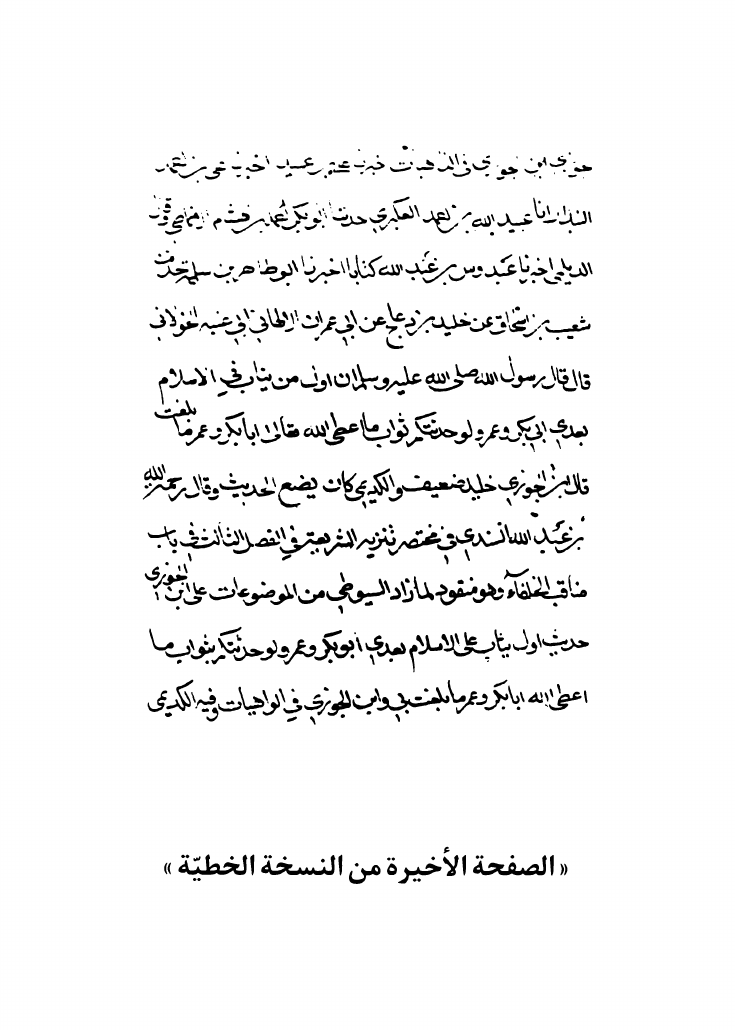 جوزي ابن جوزي في الواهيات خبرنا محمد بن عبيد اخبرنا علي بن احمد
البندار انا عبيد الله بن احمد العكبري حدثنا ابو بكر احمد بن هشام
الديلمي اخبرنا عبدوس بن عبد الله كتابا اخبرنا ابو طاهر بن سلمة حدثنا
شعيب بن اسحاق عن خليد بن دعلج عن ابي عمران الالهاني ابي عنبه الخولاني
قال قال رسول الله صلى الله عليه وسلم ان اول من يثاب في الاسلام
بعدي ابي بكر وعمر ولو حدثتكم ثواب ما اعطى الله تعالى ابا بكر وعمر ما بلغت
قال ابن الجوزي خليد ضعيف والكديمي كان يضع الحديث وقال رحمة الله
بن عبد الله السندي في مختصر تنزيه الشريعة في الفصل الثالث في باب
مناقب الخلفآء وهو منقود لما زاد السيوطي من الموضوعات على ابن الجوزي
حديث اول يثاب على الاسلام بعدي ابو بكر وعمر ولو حدثتكم بثواب ما
اعطى الله ابا بكر وعمر ما بلغت بي وابن الجوزي في الواهيات وفيه الكديمي
« الصفحة الأخيرة من النسخة الخطيّة »